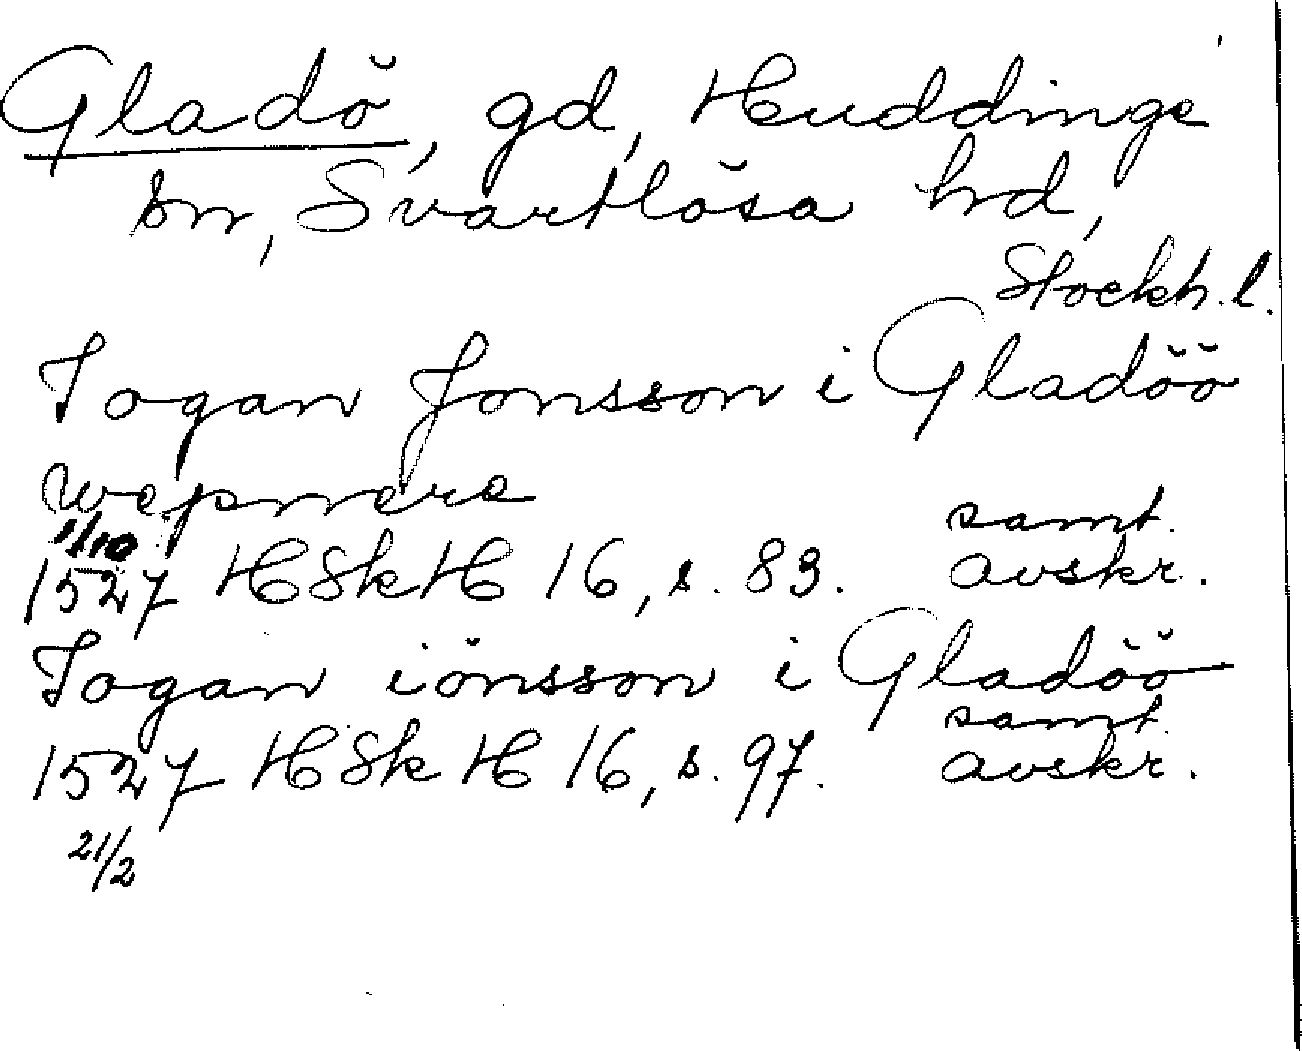 Gladö, gd, Huddinge
sn, Svartlösa hd,
Stockh. l.
Jogan Jonsson i Gladöö
wepnere
1/10
samt.
1527 HSkH 16, s. 83. avskr.
Jogan iönsson i Gladöö
samt.
1527 HSkH 16, s. 97. avskr.
21/2